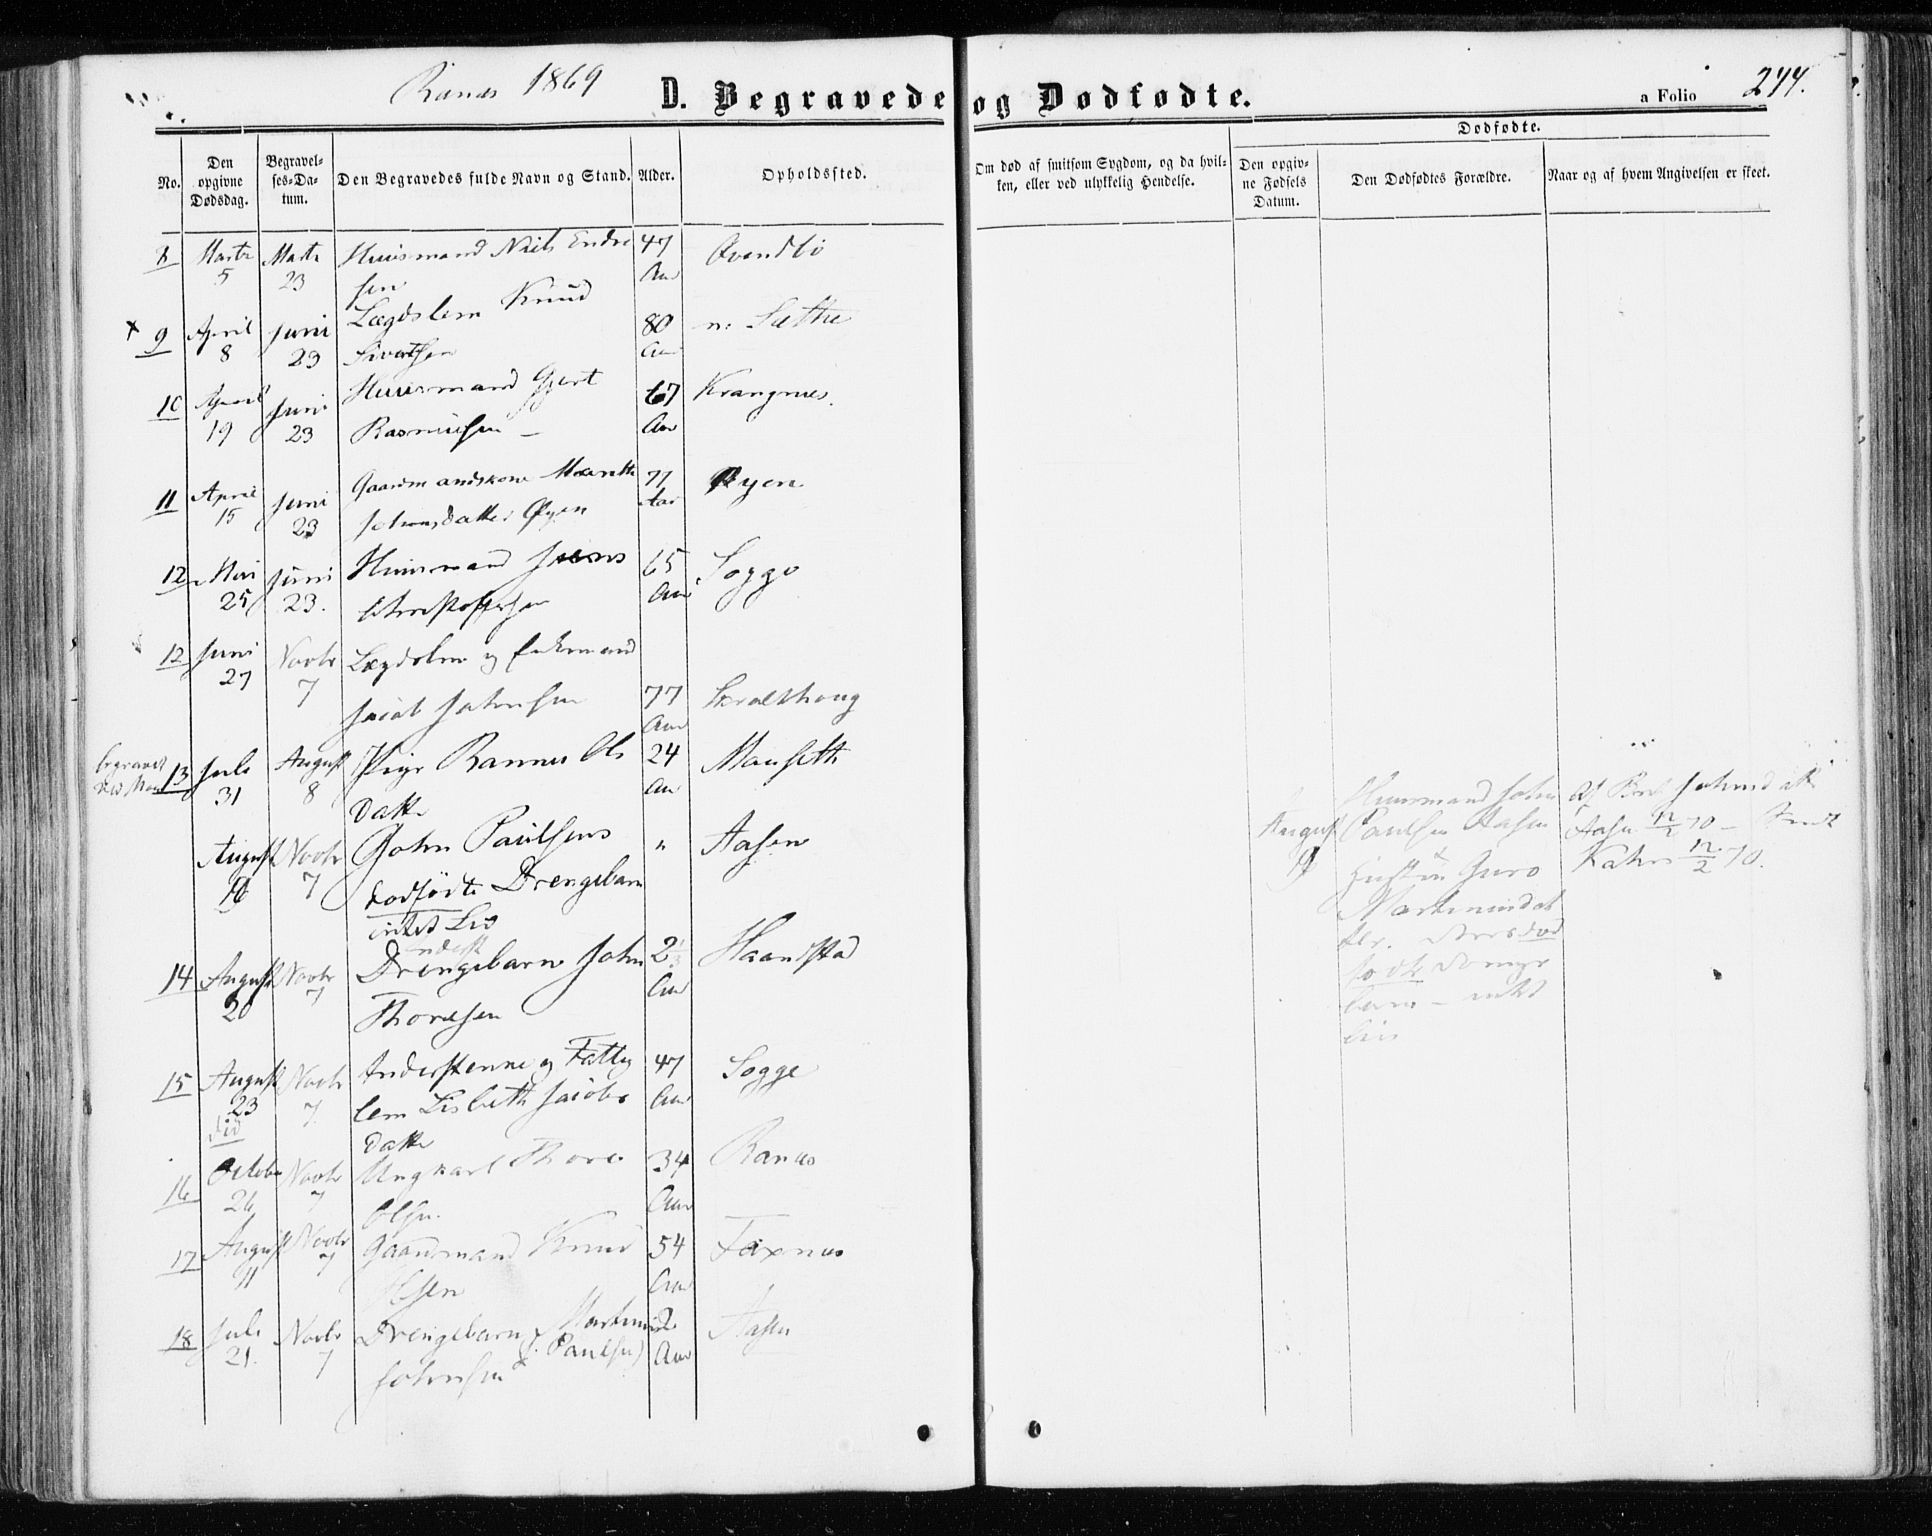 Ranæs 1869
D. Begravede og Dødfødte.
a Folio 244.
No.
Den opgivne Dødsdag.
Begravelses-Datum.
Den Begravedes fulde Navn og Stand.
Alder.
Opholdssted.
Om død af smitsom Sygdom, og da hvilken, eller ved ulykkelig Hendelse.
Dødfødte.
Den opgivne Fødsels Datum.
Den Dødfødtes Forældre.
Naar og af hvem Angivelsen er skeet.
8 Marts Marts Huusmand Niels Endre 47
5 23 sen Aar
9 April Juni Lægdslem Knud 80 Sæthre
8 23 Sivertsen Aar
10 April Juni Huusmand Gjert 67 Krangnæs
19 23 Rasmussen Aar
11 April Juni Gaardmandskone Marith 77 Øyen
15 23 Johnsdatter Øyen Aar
12 Mai Juni Huusmand Jens 65 Sogge
25 23. Christophersen Aar
12 Juni Novbr Lægdslem og Enkemand
27 7 Jacob Johnsen 77
Aar
begravet
13 Juli August Pige Ols 24 Mauseth
31 8 datter Aar
August Novbr John Paulsens " Aasen
19 7 dødfødte Drengebarn
intet Liv
14 August Novbr Drengebarn John 2 1/3 Haandstad
20 7 Thoresen Aar
15 August Novbr Inderstenke og Fattig 47 Sogge
23 7 lem Lisbeth Jacobs Aar
datter
16 October Novbr Ungkarl Thore 34 Ranæs
26 7 Olsen Aar
17 August Novbr Gaardmand Knud 54 Foxnæs
11 7 Olsen Aar
18 Juli Novbr Drengebarn Martinus 2 Aasen
21. 7 Johnsen (Paulsen) Aar
August Huusmand John
19 Paulsen Aasen
Hustru Guro
Martinusdat
ter. Deres død
fødte Drenge
barn – intet
Liv
Af Johnsdatter
Aasen 12/2 70 –
12/2 70.